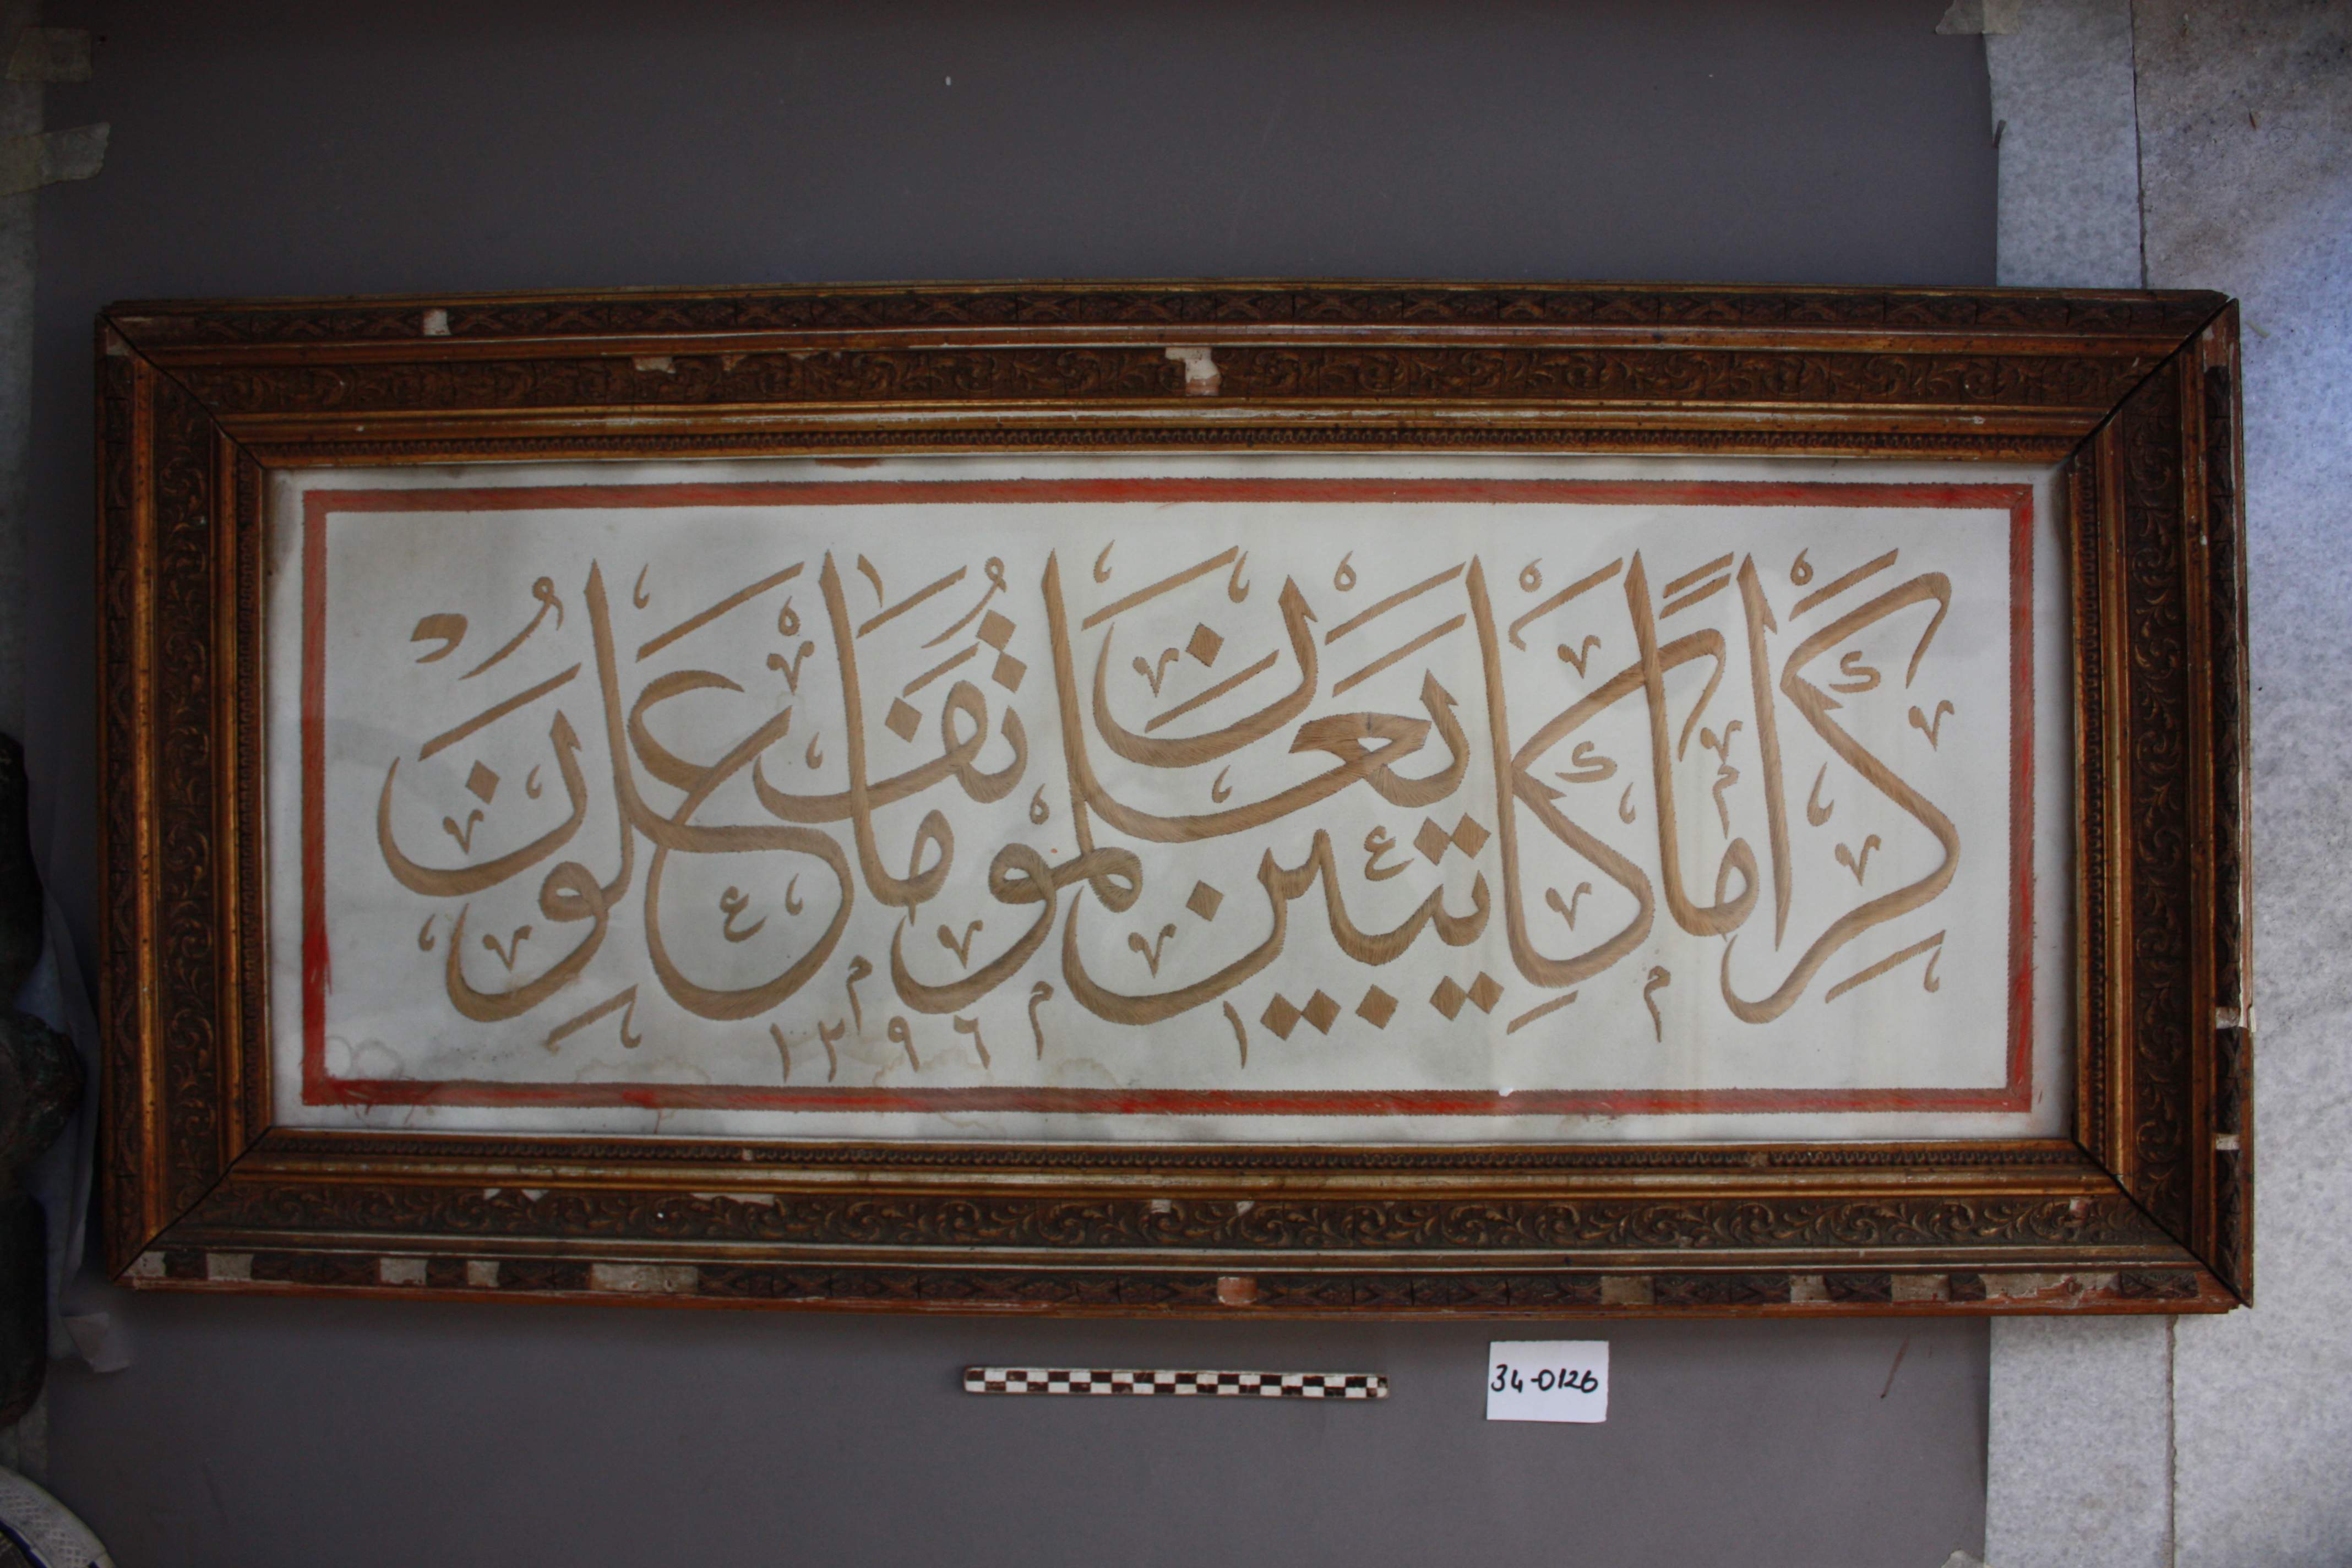 كِرَامًا كَاتِبِينَ يَعْلَمُونَ مَا تَفْعَلُونَ
١٢٩٦
34-0126